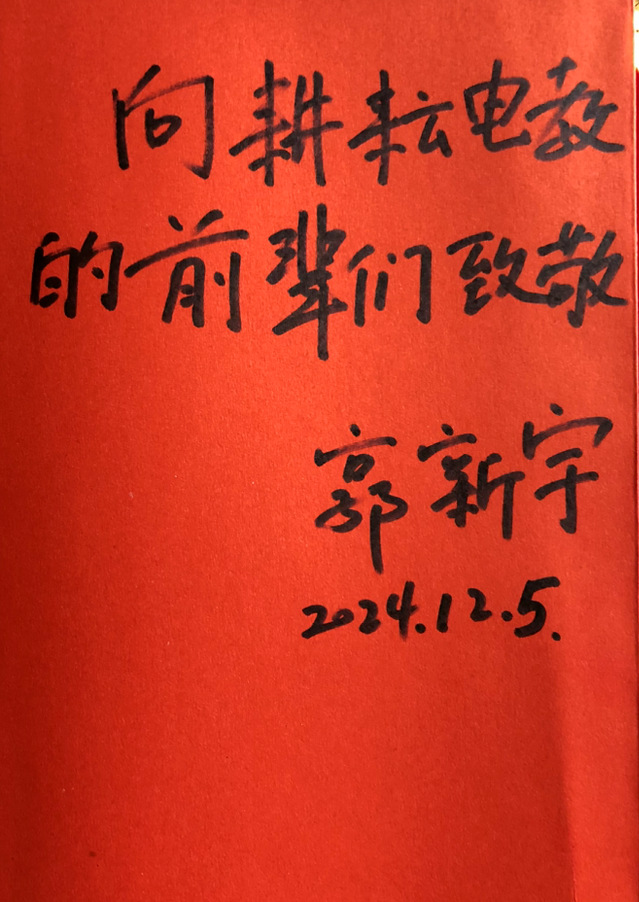 向耕耘电教
的前辈们致敬
郭新宇
2024.12.5.